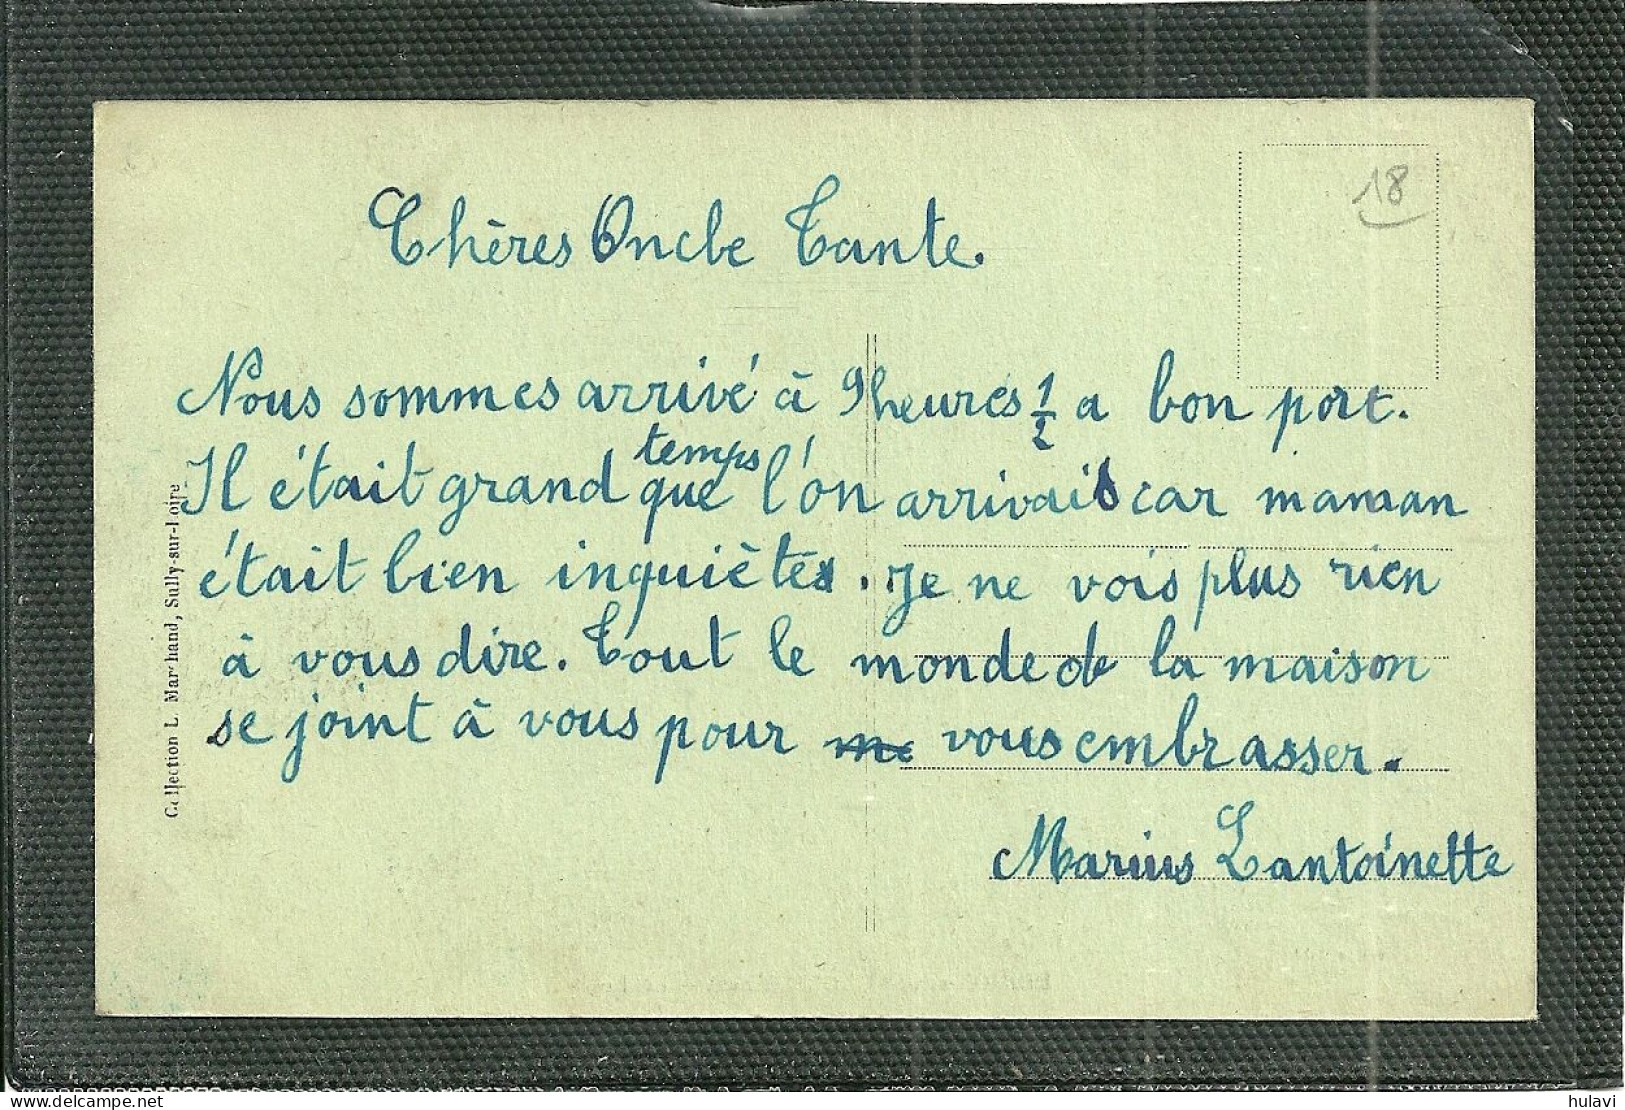 18
Chères Oncle Tante.
Nous sommes arrivé à 9 heures 1/2 a bon port.
Il était grand temps que l'on arrivais car maman
était bien inquiète. Je ne vois plus rien
à vous dire. Tout le monde de la maison
se joint à vous pour me vous embrasser.
Marius Lantoinette
Collection L. Marchand, Sully-sur-Loire
hulavi
delcampe.net